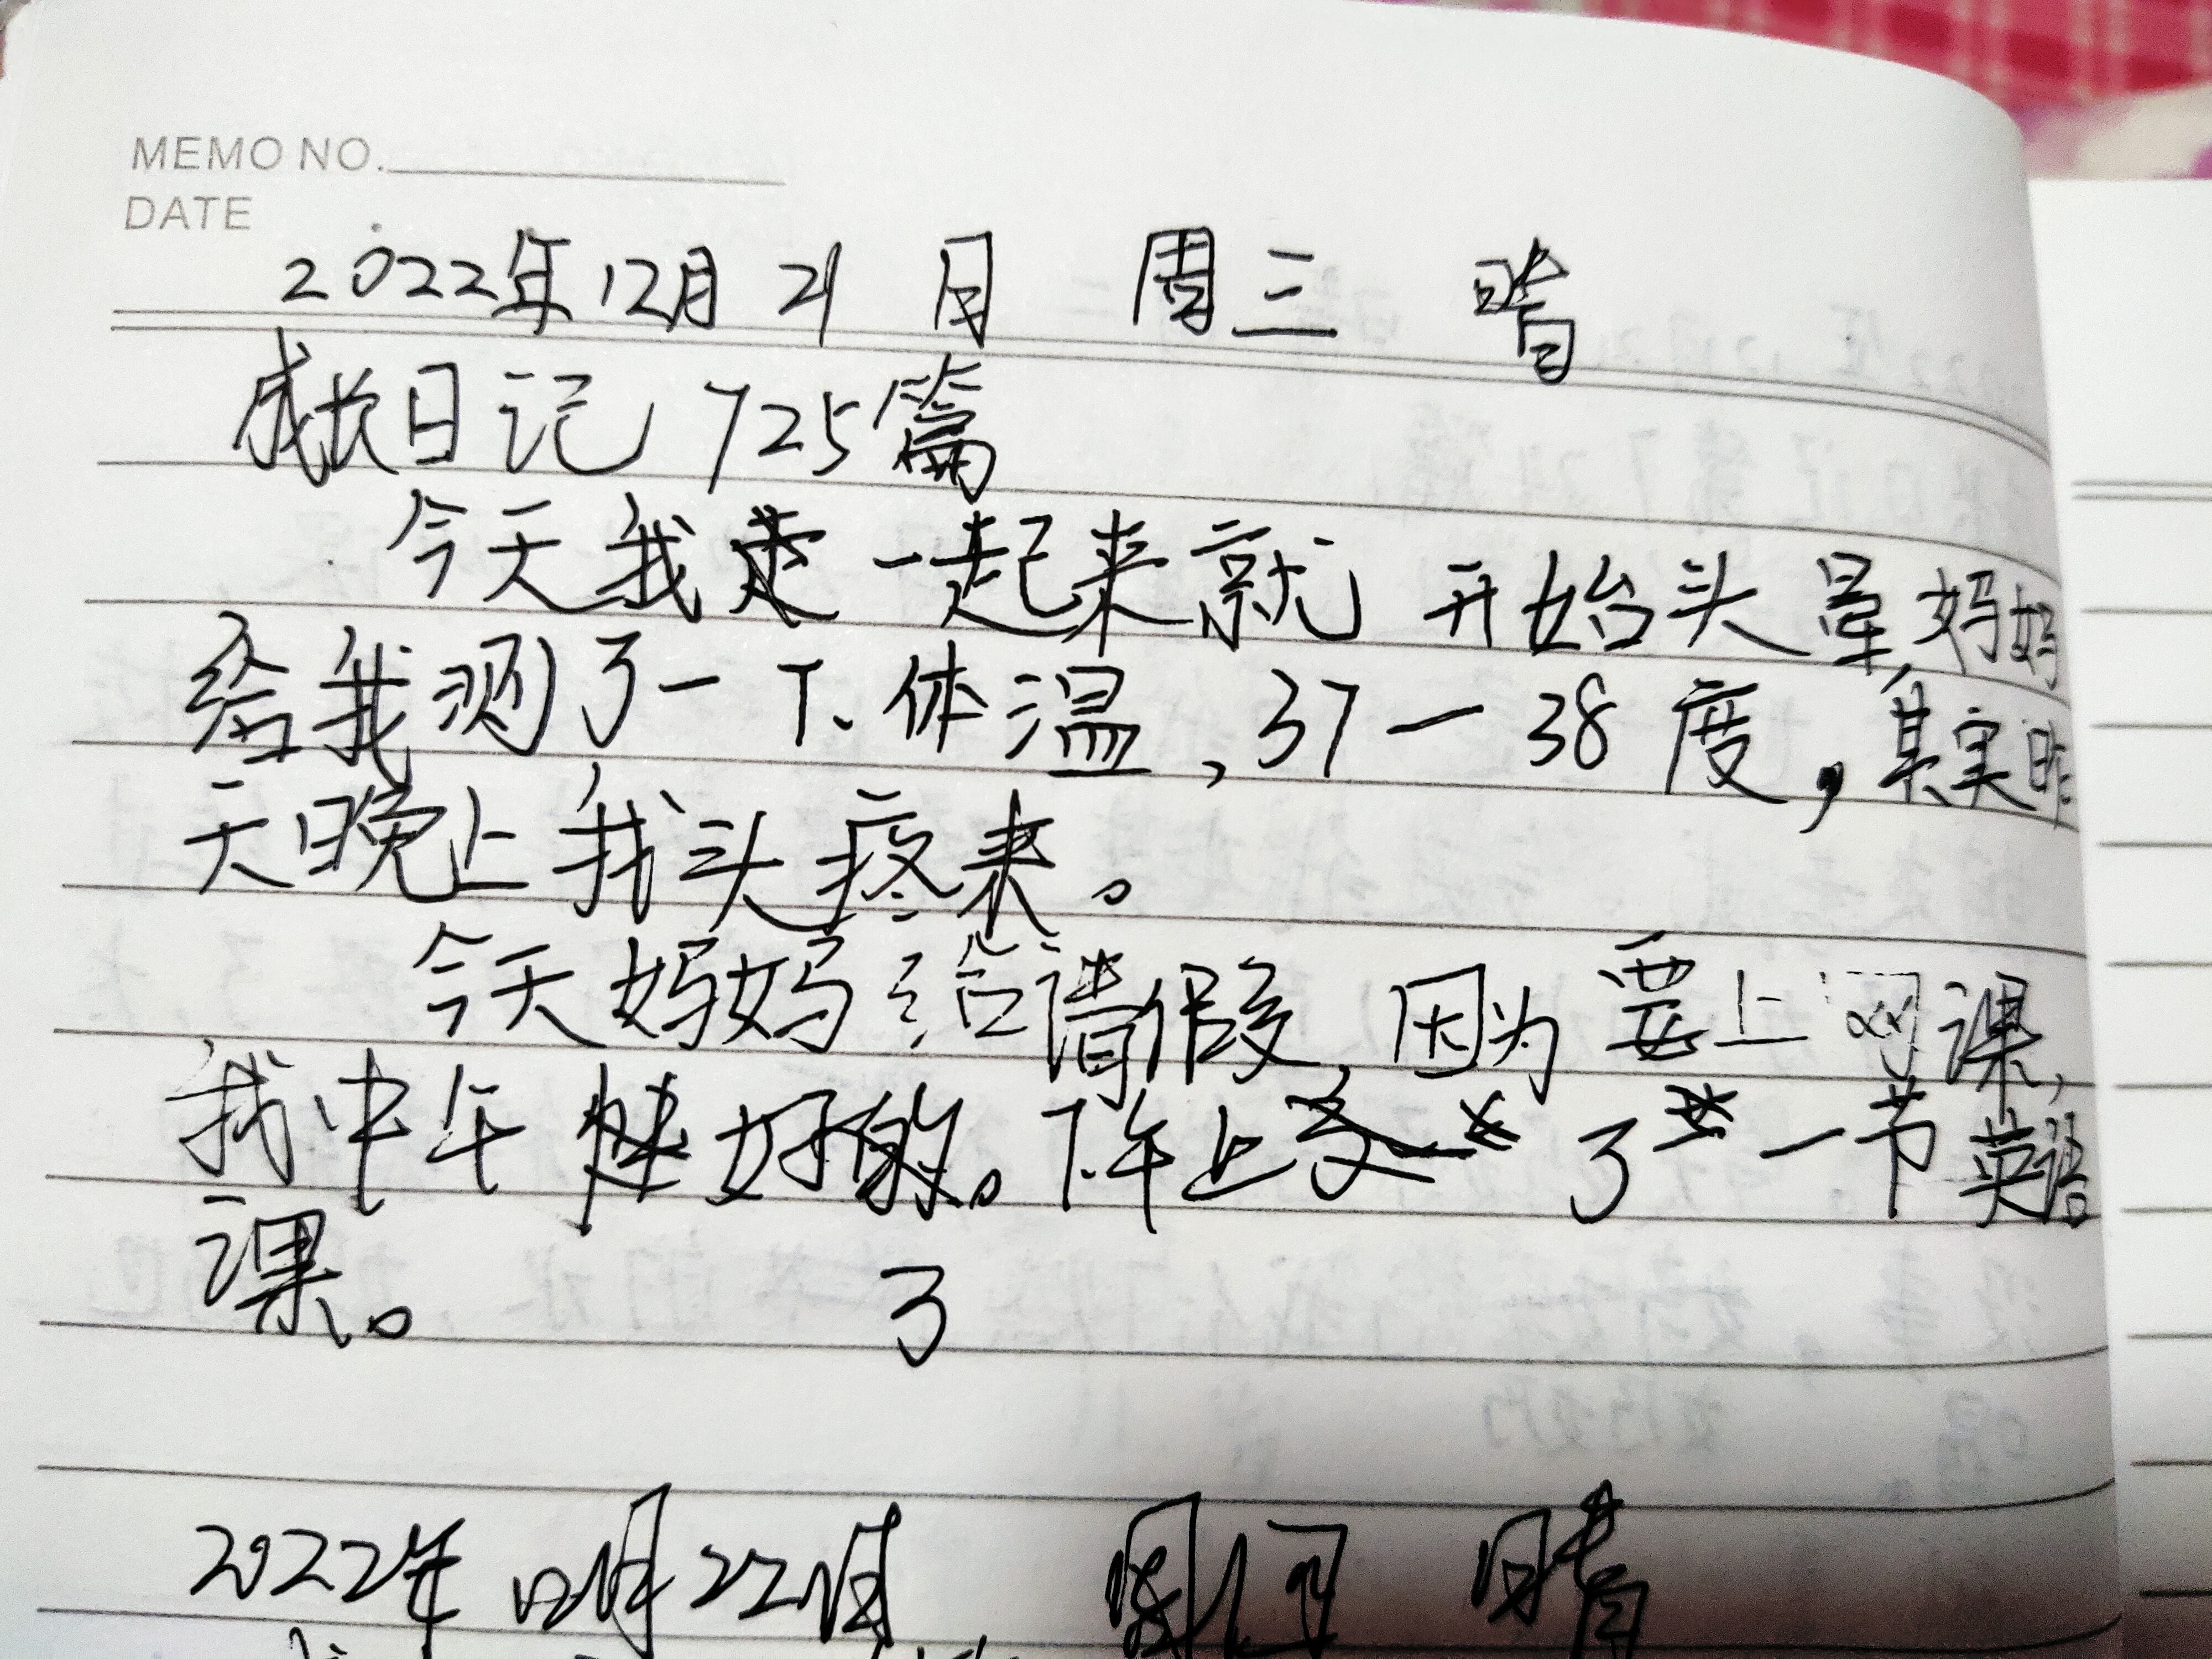 MEMO NO.
DATE
2022年12月21日 周三 晴
成长日记725篇
今天我一起来就开始头晕,妈妈
给我测了一下体温,37一38度,其实昨
天晚上我头疼来。
今天妈妈给请假,因为要上网课,
我中午 好的。下午上了一节英语
课。 了
2022年12月22日 周 晴